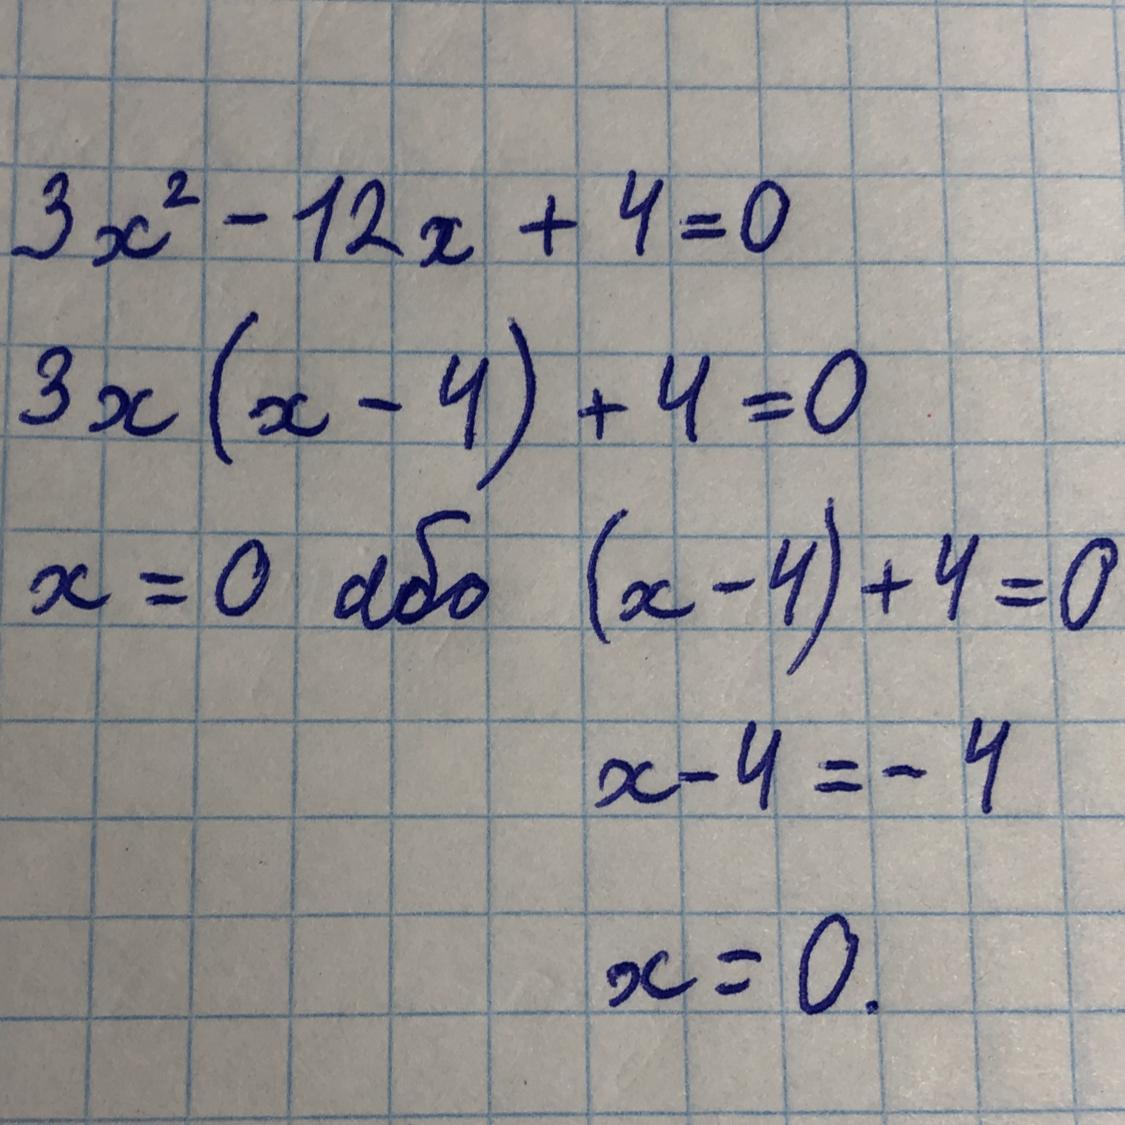 3x² - 12x + 4 = 0
3x (x - 4) + 4 = 0
x = 0 або (x - 4) + 4 = 0
x - 4 = - 4
x = 0.